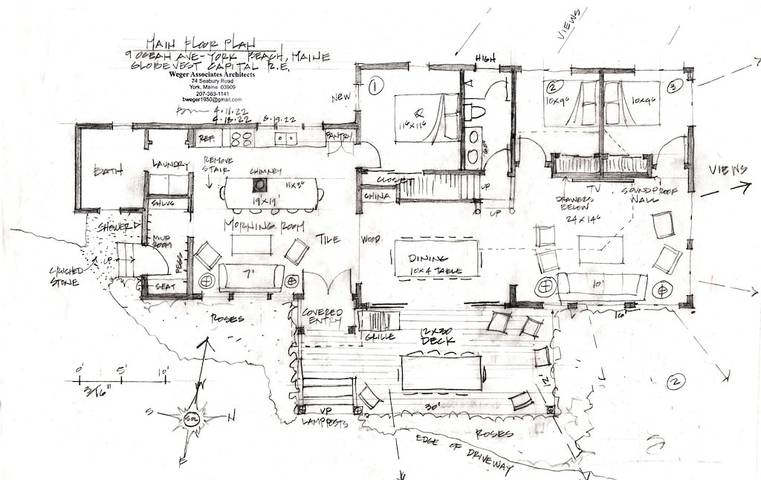 MAIN FLOOR PLAN
9 OCEAN AVE - YORK BEACH, MAINE
GLOBEVEST CAPITAL R.E.
Weger Associates Architects
74 Seabury Road
York, Maine 03909
207-363-1141
bweger1950@gmail.com
4.11.22
4.18.22
5.19.22
VIEWS
HIGH
NEW
1
Q
11⁶x11⁶
2
10x9⁶
3
10x9⁶
REF
PANTRY
BATH
LAUNDRY
REMOVE
STAIR
CHIMNEY
11x3⁰
19x19⁶
CLOSET
CHINA
UP
UP
TV
DRAWERS
BELOW
SOUNDPROOF
WALL
24x14⁶
VIEWS
SHLVG
SHOWER
MUD
ROOM
PEGS
UP
SEAT
CRUSHED
STONE
MORNING ROOM
TILE
WOOD
7'
DINING
10x4 TABLE
10'
16'
COVERED
ENTRY
GRILLE
12x30
DECK
12'
30'
UP
LAMPPOSTS
ROSES
ROSES
EDGE OF DRIVEWAY
2
0 5' 10'
3/16"
W
S
N
E